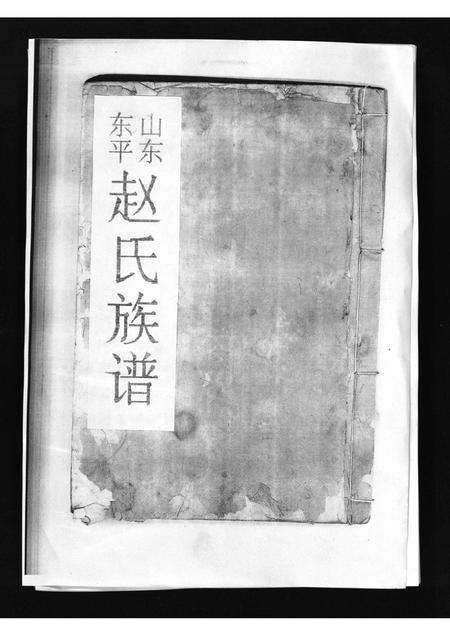 山东
东平
赵氏族谱